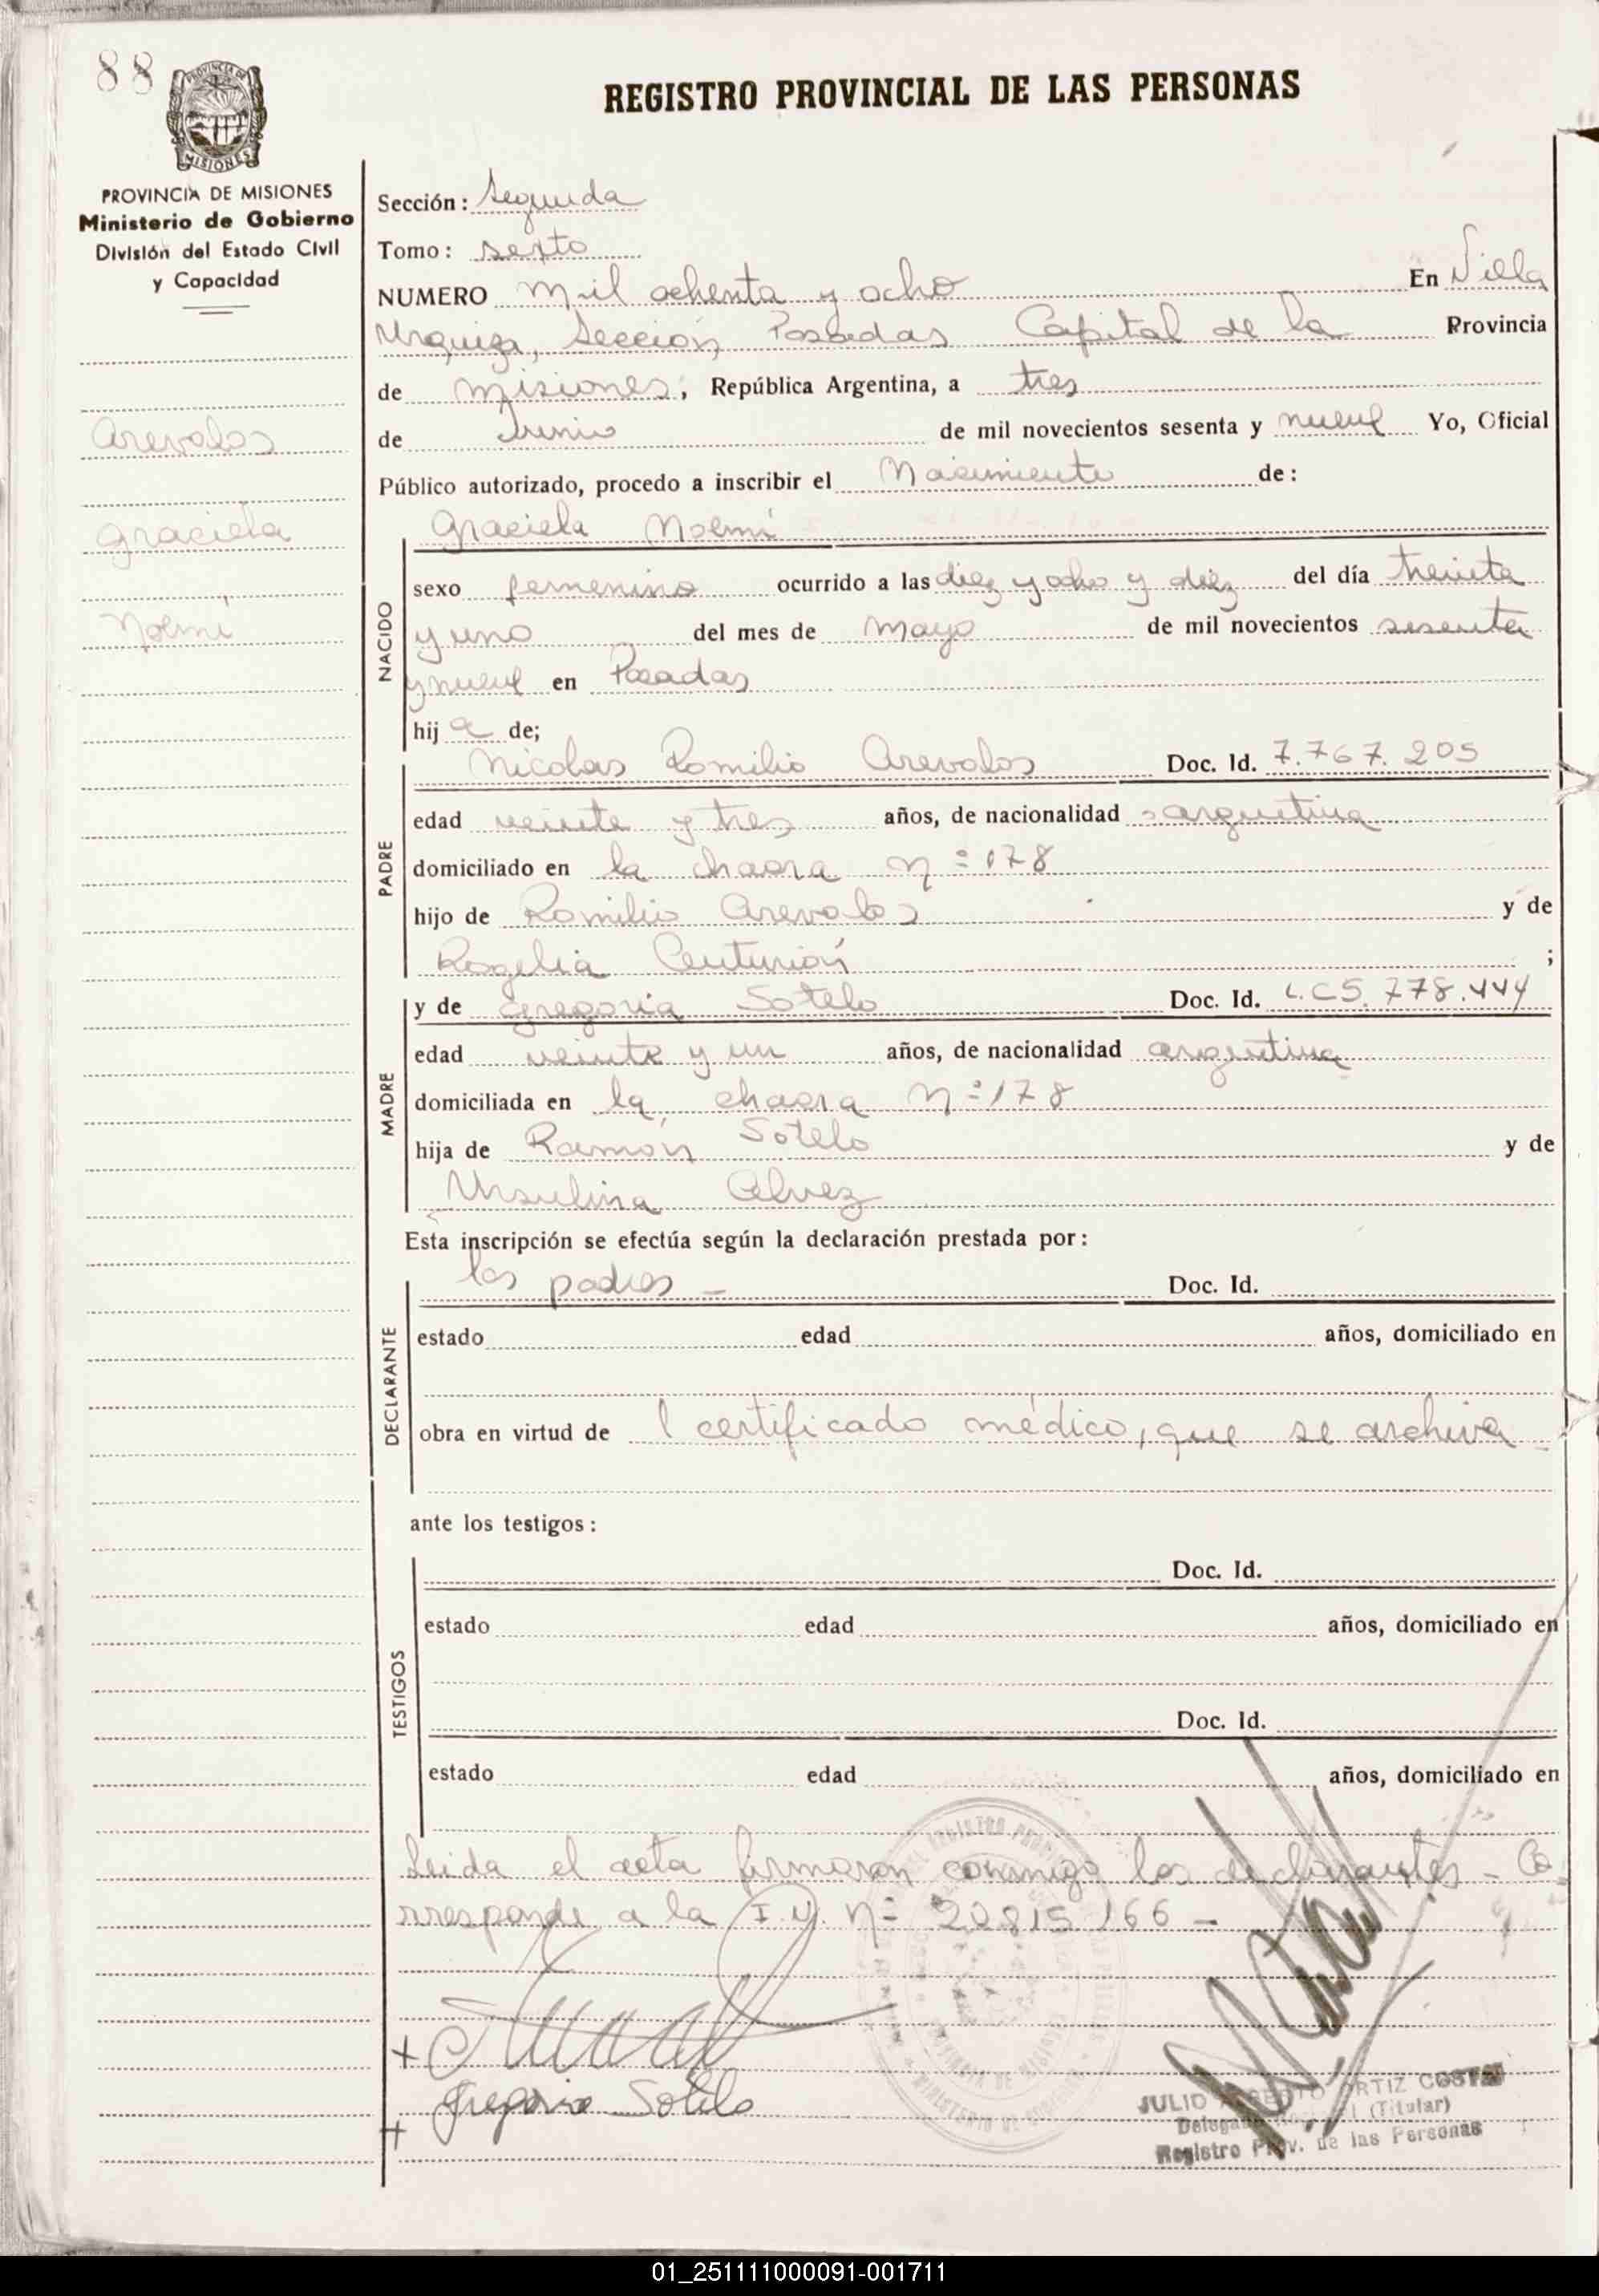 88
PROVINCIA DE
MISIONES
REGISTRO PROVINCIAL DE LAS PERSONAS
PROVINCIA DE MISIONES
Ministerio de Gobierno
División del Estado Civil
y Capacidad
Arevalos
Graciela
Noemí
Sección: Segunda
Tomo: sexto
NUMERO mil ochenta y ocho En Villa
Urquiza, Sección Posadas Capital de la Provincia
de misiones, República Argentina, a tres
de Junio de mil novecientos sesenta y nueve Yo, Oficial
Público autorizado, procedo a inscribir el Nacimiento de:
NACIDO
Graciela Noemí
sexo femenino ocurrido a las diez y ocho y diez del día treinta
y uno del mes de mayo de mil novecientos sesenta
y nueve en Posadas
hij a de;
PADRE
Nicolas Romilio Arevalos Doc. Id. 7.767.205
edad veinte y tres años, de nacionalidad argentina
domiciliado en la chacra n° 178
hijo de Romilio Arevalos y de
Rogelia Centurión ;
MADRE
y de Gregoria Sotelo Doc. Id. L.C 5.778.444
edad veinte y un años, de nacionalidad argentina
domiciliada en la chacra n° 178
hija de Ramón Sotelo y de
Ursulina Alvez
Esta inscripción se efectúa según la declaración prestada por:
DECLARANTE
los padres - Doc. Id.
estado edad años, domiciliado en
obra en virtud de l certificado médico, que se archiva -
ante los testigos:
TESTIGOS
Doc. Id.
estado edad años, domiciliado en
Doc. Id.
estado edad años, domiciliado en
Leida el acta firmaron conmigo los declarantes - Co
rresponde a la I.U. n° 20815166 -
+
Gregoria Sotelo
+
JULIO ORTIZ COSTA
(Titular)
Registro Prov. de las Personas
01_251111000091-001711